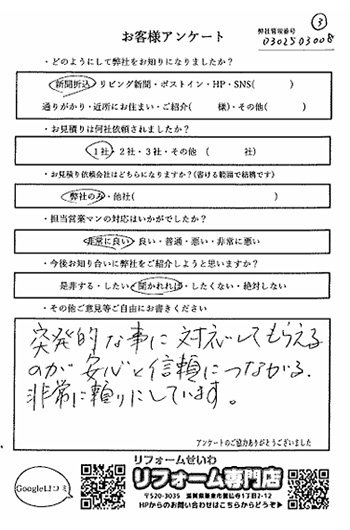 ③
お客様アンケート
弊社管理番号
0302503008
・どのようにして弊社をお知りになりましたか？
新聞折込・リビング新聞・ポストイン・HP・SNS(　　　)
通りがかり・近所にお住まい・ご紹介(　　　様)・その他(　　　)
・お見積りは何社依頼されましたか？
1社・2社・3社・その他　(　　　社)
・お見積り依頼会社はどちらになりますか？(書ける範囲で結構です)
弊社のみ・他社(　　　)
・担当営業マンの対応はいかがでしたか？
非常に良い・良い・普通・悪い・非常に悪い
・今後お知り合いに弊社をご紹介しようと思いますか？
是非する・したい・聞かれれば・したくない・絶対しない
・その他ご意見等ご自由にお書きください
突発的な事に対応してもらえる
のが安心と信頼につながる.
非常に頼りにしています。
アンケートのご協力ありがとうございました
GoogleI口コミ
リフォームせいわ
リフォーム専門店
〒520-3035 滋賀県栗東市霊仙寺1丁目2-12
HPからのお問い合わせはこちらからどうぞ▶